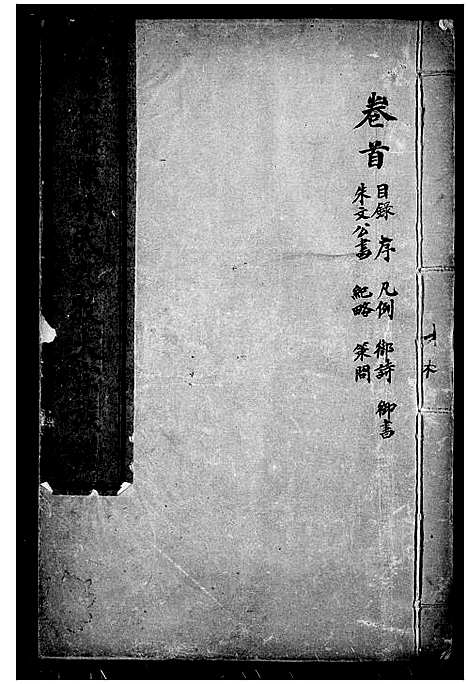 卷首
目錄 序 凡例 御詩 御書
朱文公書 紀略 策問